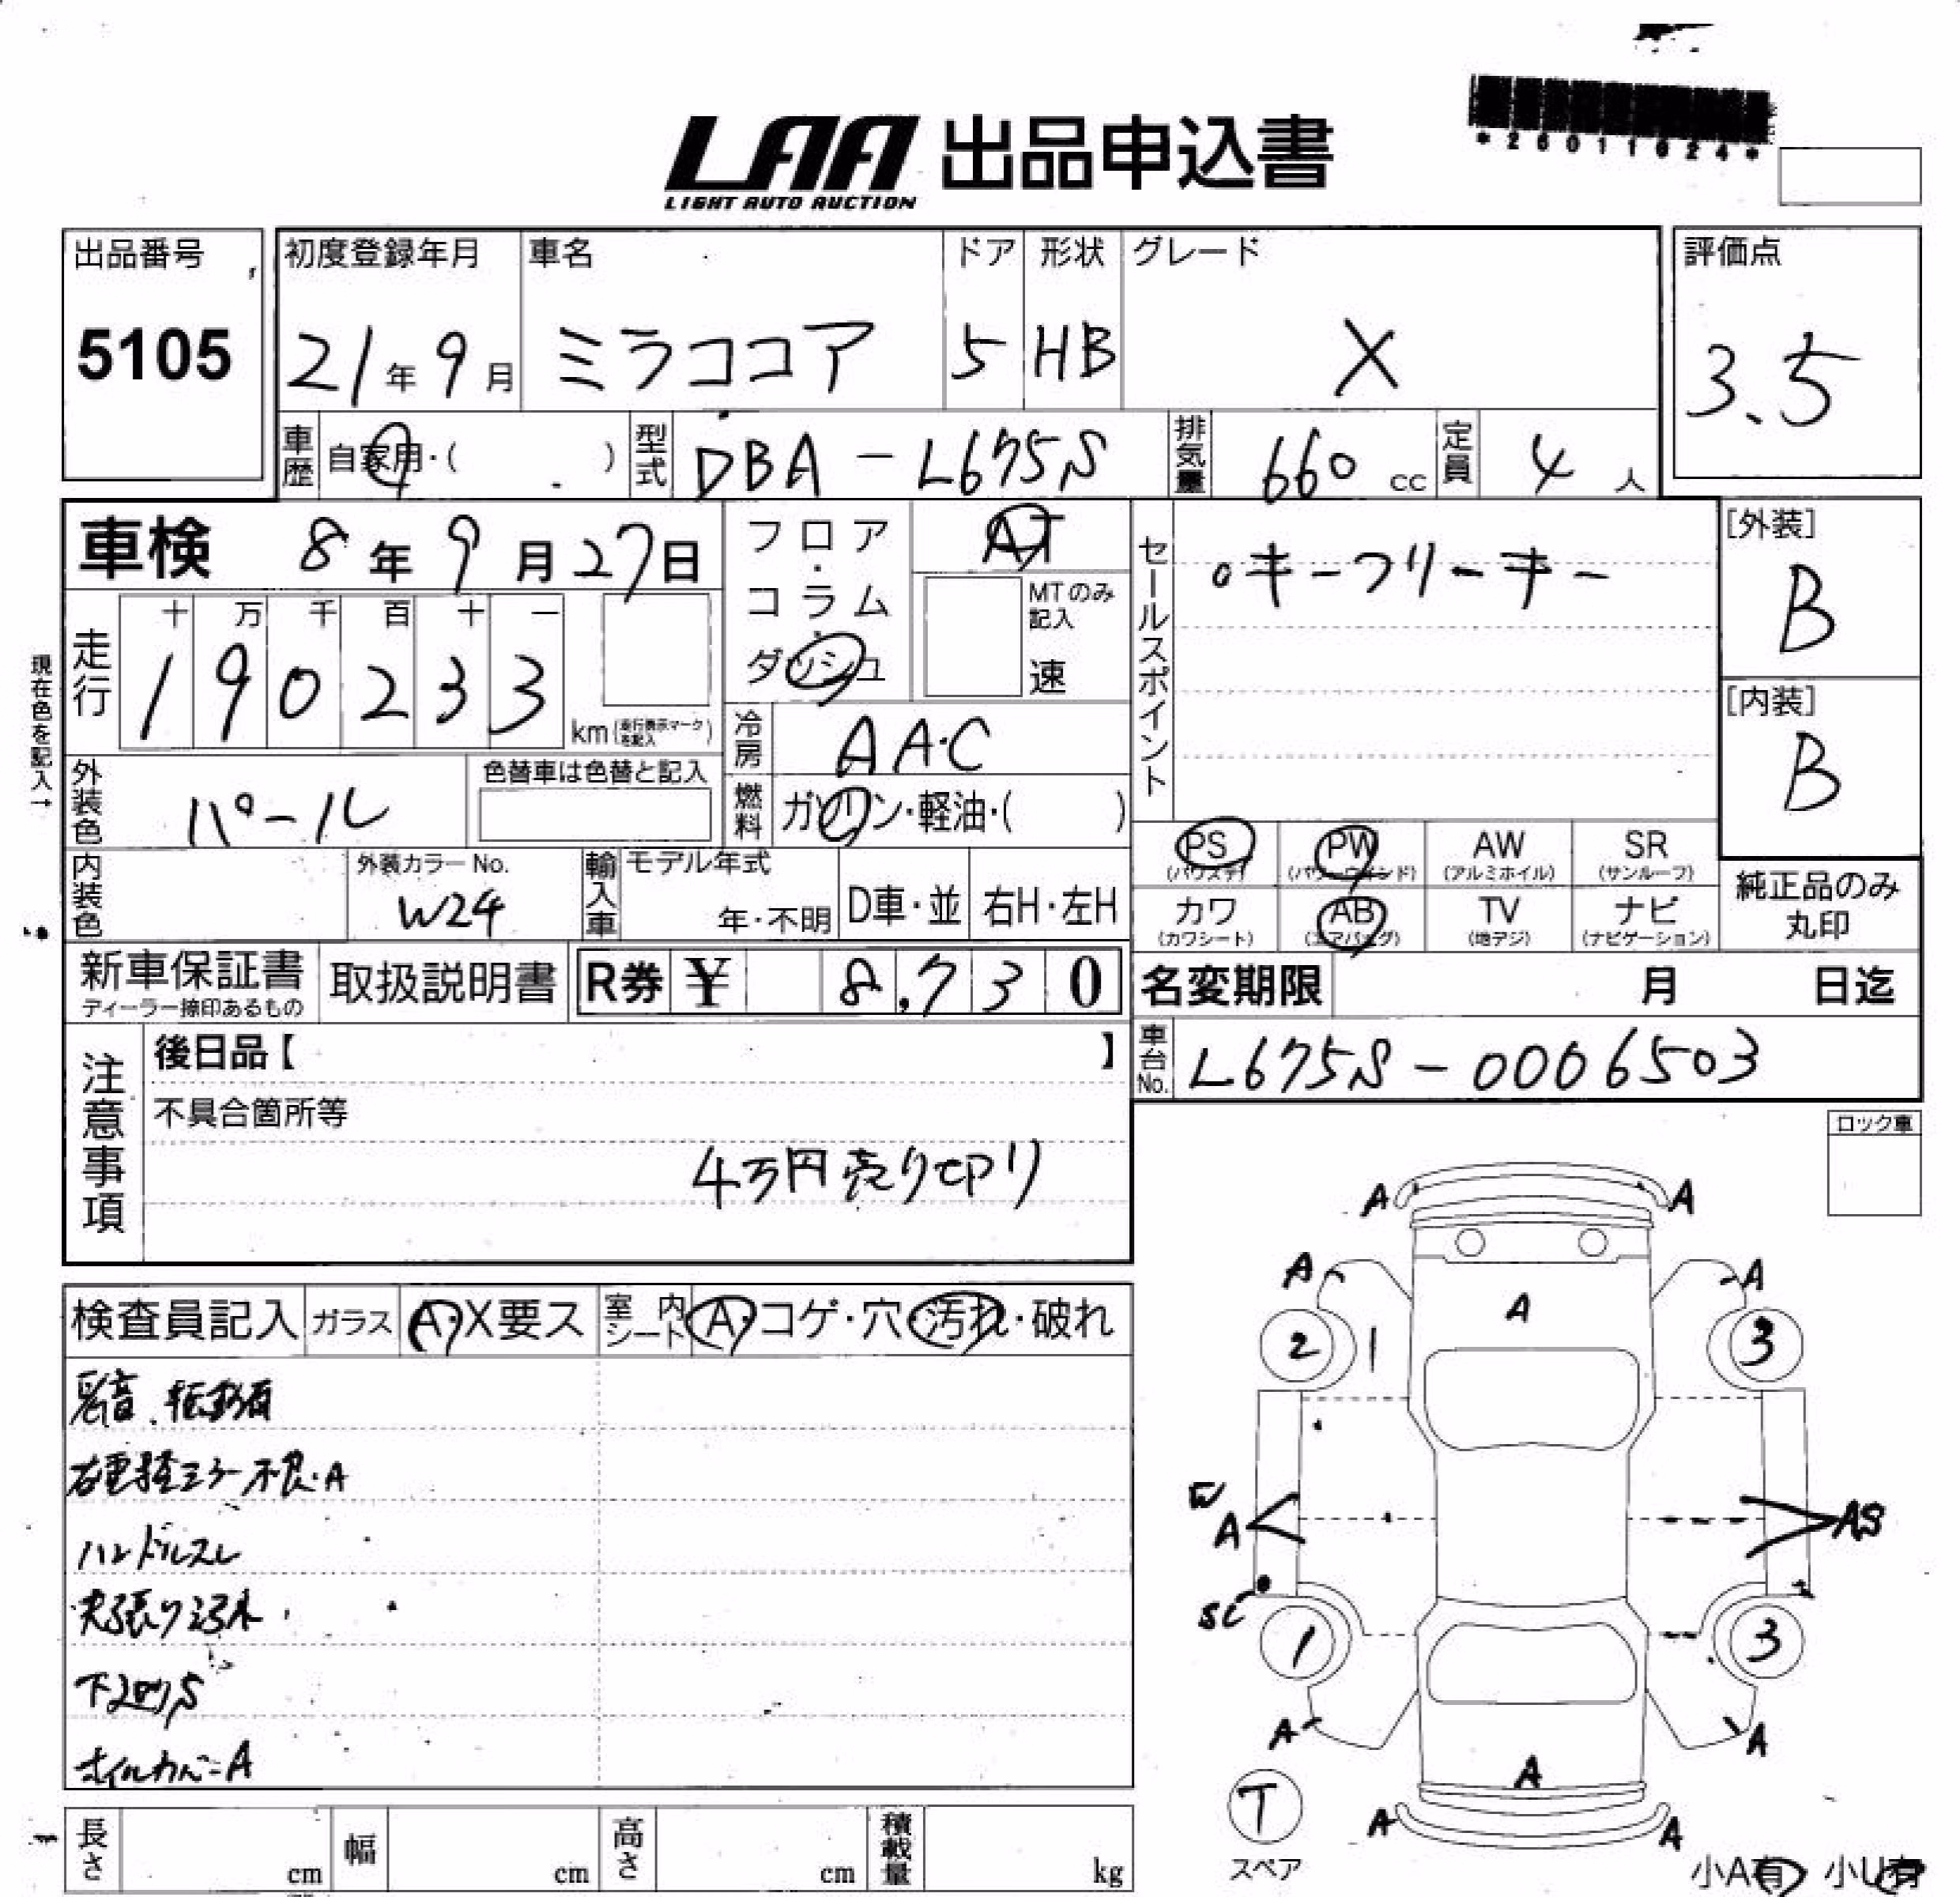 *26011624*
LAA 出品申込書
LIGHT AUTO AUCTION
出品番号
5105
初度登録年月
21年9月
車名
ミラココア
ドア
5
形状
HB
グレード
X
評価点
3.5
車歴
自家用・( )
型式
DBA-L675S
排気量
660 cc
定員
4 人
車検 8年9月27日
フロア・コラム・ダッシュ
AT
MTのみ記入
速
セールスポイント
・キーフリーキー
[外装]
B
[内装]
B
現在色を記入→
走行
十 万 千 百 十 一
1 9 0 2 3 3
km (走行表示マークを記入)
冷房
AAC
外装色
パール
色替車は色替と記入
燃料
ガソリン・軽油・( )
PS (パワステ)
PW (パワーウインド)
AW (アルミホイル)
SR (サンルーフ)
カワ (カワシート)
AB (エアバッグ)
TV (地デジ)
ナビ (ナビゲーション)
純正品のみ丸印
内装色
外装カラーNo.
W24
輸入車
モデル年式
年・不明
D車・並
右H・左H
新車保証書
ディーラー捺印あるもの
取扱説明書
R券 ¥ 8,730
名変期限 月 日迄
車台No.
L675S-0006503
注意事項
後日品【 】
不具合箇所等
4万円売り切り
ロック車
検査員記入
ガラス
A・X要ス
室内シート
A・コゲ・穴・汚れ・破れ
ハンドルスレ
天張り汚れ
下廻りS
ホイルカバーA
A A
A A
A
2 1 3
W
A AS
SC
1 3
A A
A
A A
T
スペア
小A有 小U有
長さ cm
幅 cm
高さ cm
積載量 kg